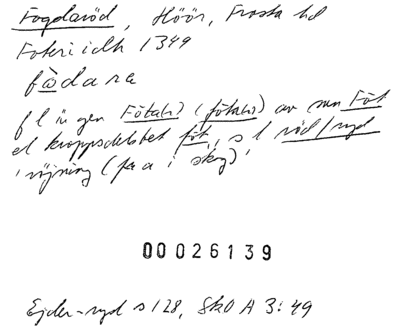 Fogdaröd, Höör, Frosta hd
Foteriidh 1349
fòdara
f l ä gen Föta(r) (föta(r)) av mn Föt
el kroppsdelsbet föt, s l röd/ryd
'röjning (fr a i skog)'
00026139
Ejder-ryd s 128, SkO A 3:49